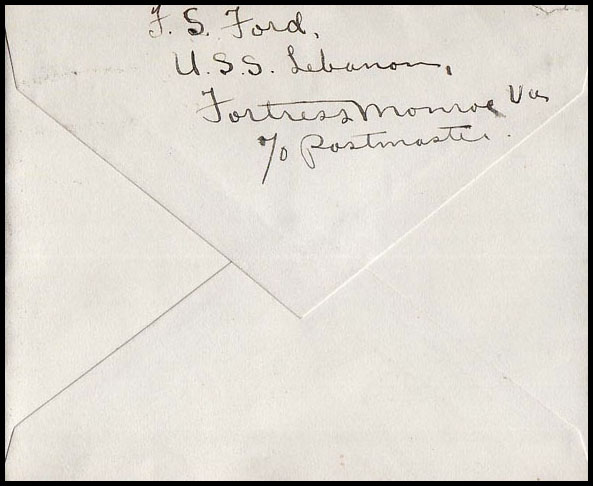 F. S. Ford,
U.S.S. Lebanon,
Fortress Monroe Va
c/o Postmaster.